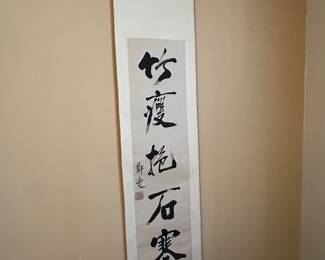 竹瘦抱石寒